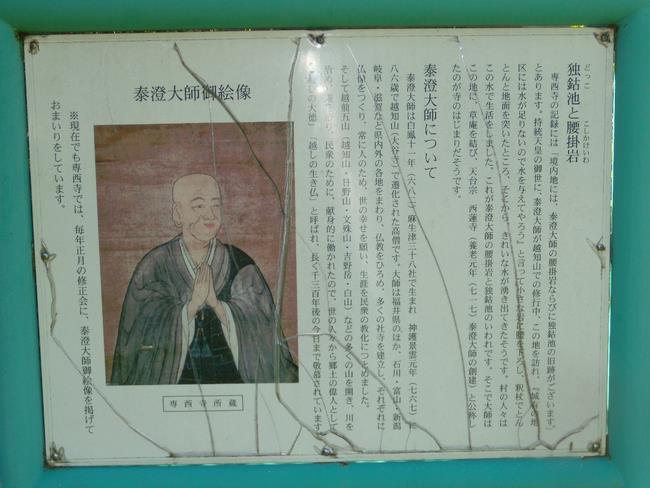 どっこ　こしかけいわ
独鈷池と腰掛岩
専西寺の記録には「境内地には、泰澄大師の腰掛岩ならびに独鈷池の旧跡がございます」
とあります。持統天皇の御世に、泰澄大師が越知山での修行中、この地を訪れ、『城有の地
区には水が足りないので水を与えてやろう』と言って小さな岩に腰を下ろし、釈杖でとん
とんと地面を突いたところ、そこから、きれいな水が湧き出てきたそうです。村の人々は
この水で生活をしました。これが泰澄大師の腰掛岩と独鈷池のいわれです。そこで大師は
この地に、草庵を結び、天台宗　西蓮寺（養老元年（七一七）泰澄大師の創建）と公称し
たのが寺のはじまりだそうです。
泰澄大師について
泰澄大師は白鳳十一年（六八二）麻生津三十八社で生まれ　神護景雲元年（七六七）に
八六歳で越知山（大谷寺）で遷化された高僧です。大師は福井県のほか、石川・富山・新潟
岐阜・滋賀など県内外の各地をまわり、仏教をひろめ、多くの社寺を建立し、それぞれに
仏像をつくり、常に人のため、世の幸せを願い、生涯を民衆の教化につとめました。
そして越前五山（越知山・日野山・文殊山・吉野岳・白山）などの多くの山を開き、川を
治め、民衆のために、献身的に働かれたので、世の人々から郷土の偉人として
の大徳」「越しの生き仏」と呼ばれ、長く千三百年後の今日まで敬慕されています。
泰澄大師御絵像
専西寺所蔵
※現在でも専西寺では、毎年正月の修正会に、泰澄大師御絵像を掲げて
おまいりをしています。